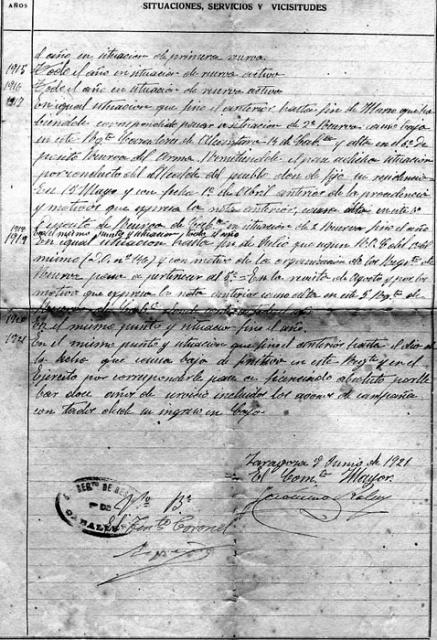 AÑOS
SITUACIONES, SERVICIOS Y VICISITUDES
el año en situacion de primera reserva
1915 Todo el año en situacion de reserva activa
1916 Todo el año en situacion de reserva activa
1917 En igual situacion que fino el anterior hasta fin de Marzo que ha
biendole correspondido pasar a situacion de 2ª Reserva causo baja
en este Regto Cazadores de Alcantara 14 de Cabia y alta en el 5º De
posito Reserva del Arma
por conducto del Alcalde del pueblo don de fijo su residencia
En 1º Mayo y con fecha 1º de Abril anterior de la procedencia
y motivos que expresa la nota anterior, causo alta en este 5º
Deposito de Reserva de en situacion de 2ª Reserva fino el año
1918
1919 En igual situacion hasta fin de Julio que segun R.O. del
mismo (D.O. nº 146) y con motivo de la organizacion de los Regtos de
Reserva pasa a pertenecer al 5º = En la revista de Agosto y por los
motivos que expresa la nota anterior causo alta en este 5º Regto de
1920 En el mismo punto y situacion fino el año.
1921 En el mismo punto y situacion que fino el anterior hasta el dia de
la fecha que causa baja de en este Regto y en el
Ejercito por corresponderle pasar a licenciado absoluto por lle
bar doce años de servicio incluidos los abonos de campaña
con tados desde su ingreso en Caja
Zaragoza 9 Junio de 1921
El Comte Mayor.
Vº Bº
El Tente Coronel